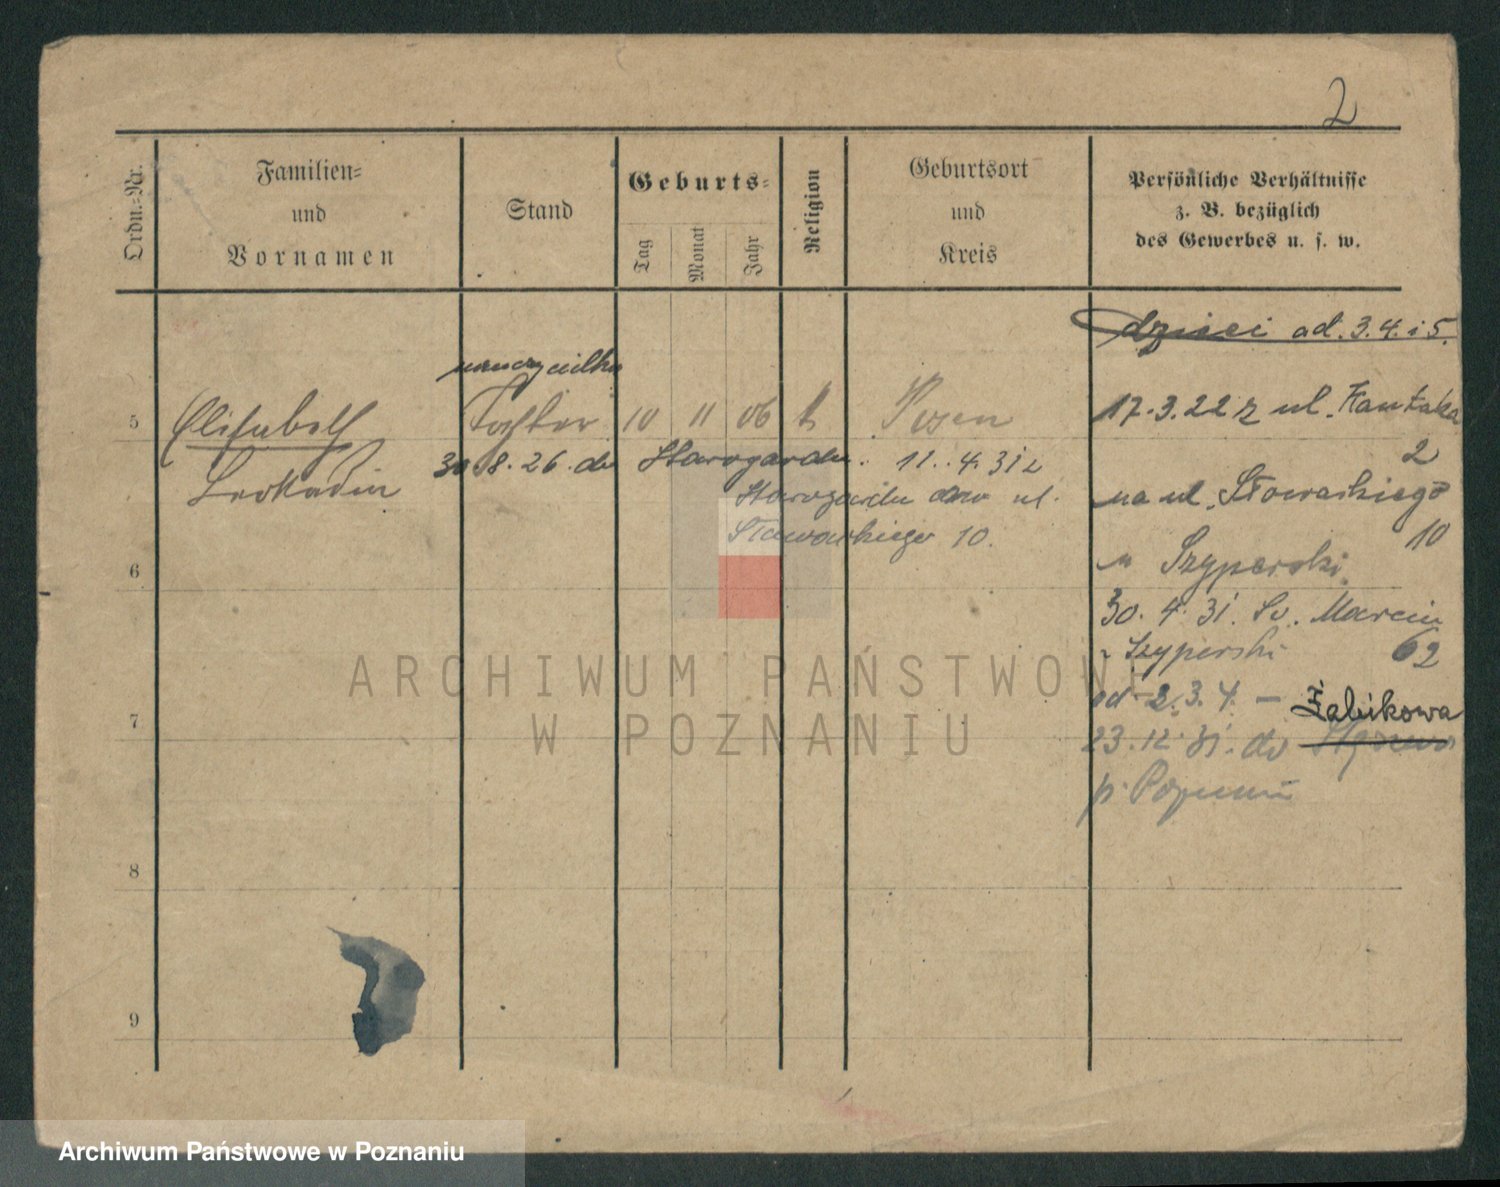 2
Ordn.-Nr.
Familien-
und
Vornamen
Stand
Geburts-
Tag
Monat
Jahr
Religion
Geburtsort
und
Kreis
Persönliche Verhältnisse
z. B. bezüglich
des Gewerbes u. s. w.
dzieci ad. 3. 4. i 5.
nauczycielka
5 Elisabeth Tochter 10 11 06 k Posen
Leokadia
30 8. 26. do Starogardu. 11. 4. 31 z
Starogardu ul.
Słowackiego 10.
17. 3. 22 z ul. Kantaka
2
na ul. Słowackiego
10
u Szyperski
30. 4. 31. Św. Marcin
62
Szyperski
ad 2. 3. 4. – Żabikowa
23. 12. 31. do
p. Poznań
6
7
8
9
ARCHIWUM PAŃSTWOWE
W POZNANIU
Archiwum Państwowe w Poznaniu